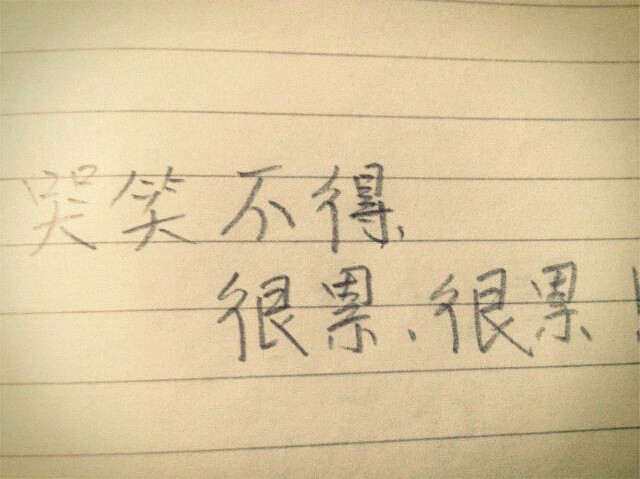 哭笑不得、
很累、很累!